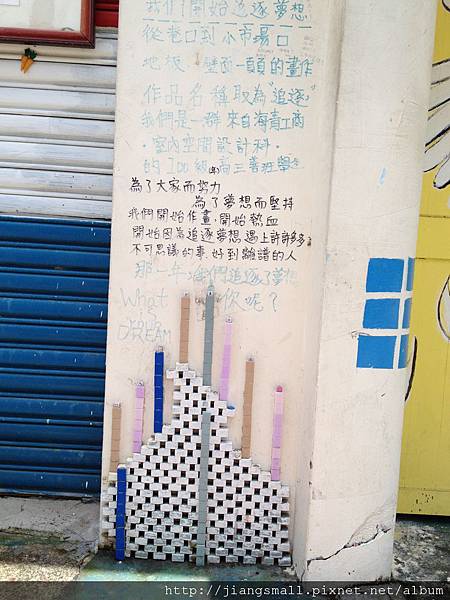 我們開始追逐夢想
從巷口到小市場口
地板、壁面一頭的畫作
作品名稱取為"追逐"
我們是一群來自海青工商
·室內空間設計科·
的100級高三善班學生
為了大家而努力
為了夢想而堅持
我們開始作畫,開始熱血
開始因為追逐夢想,遇上許許多多
不可思議的事,好到離譜的人
那一年,我們追逐了夢想
What 你呢?
is
DREAM
http://jiangsmall.pixnet.net/album